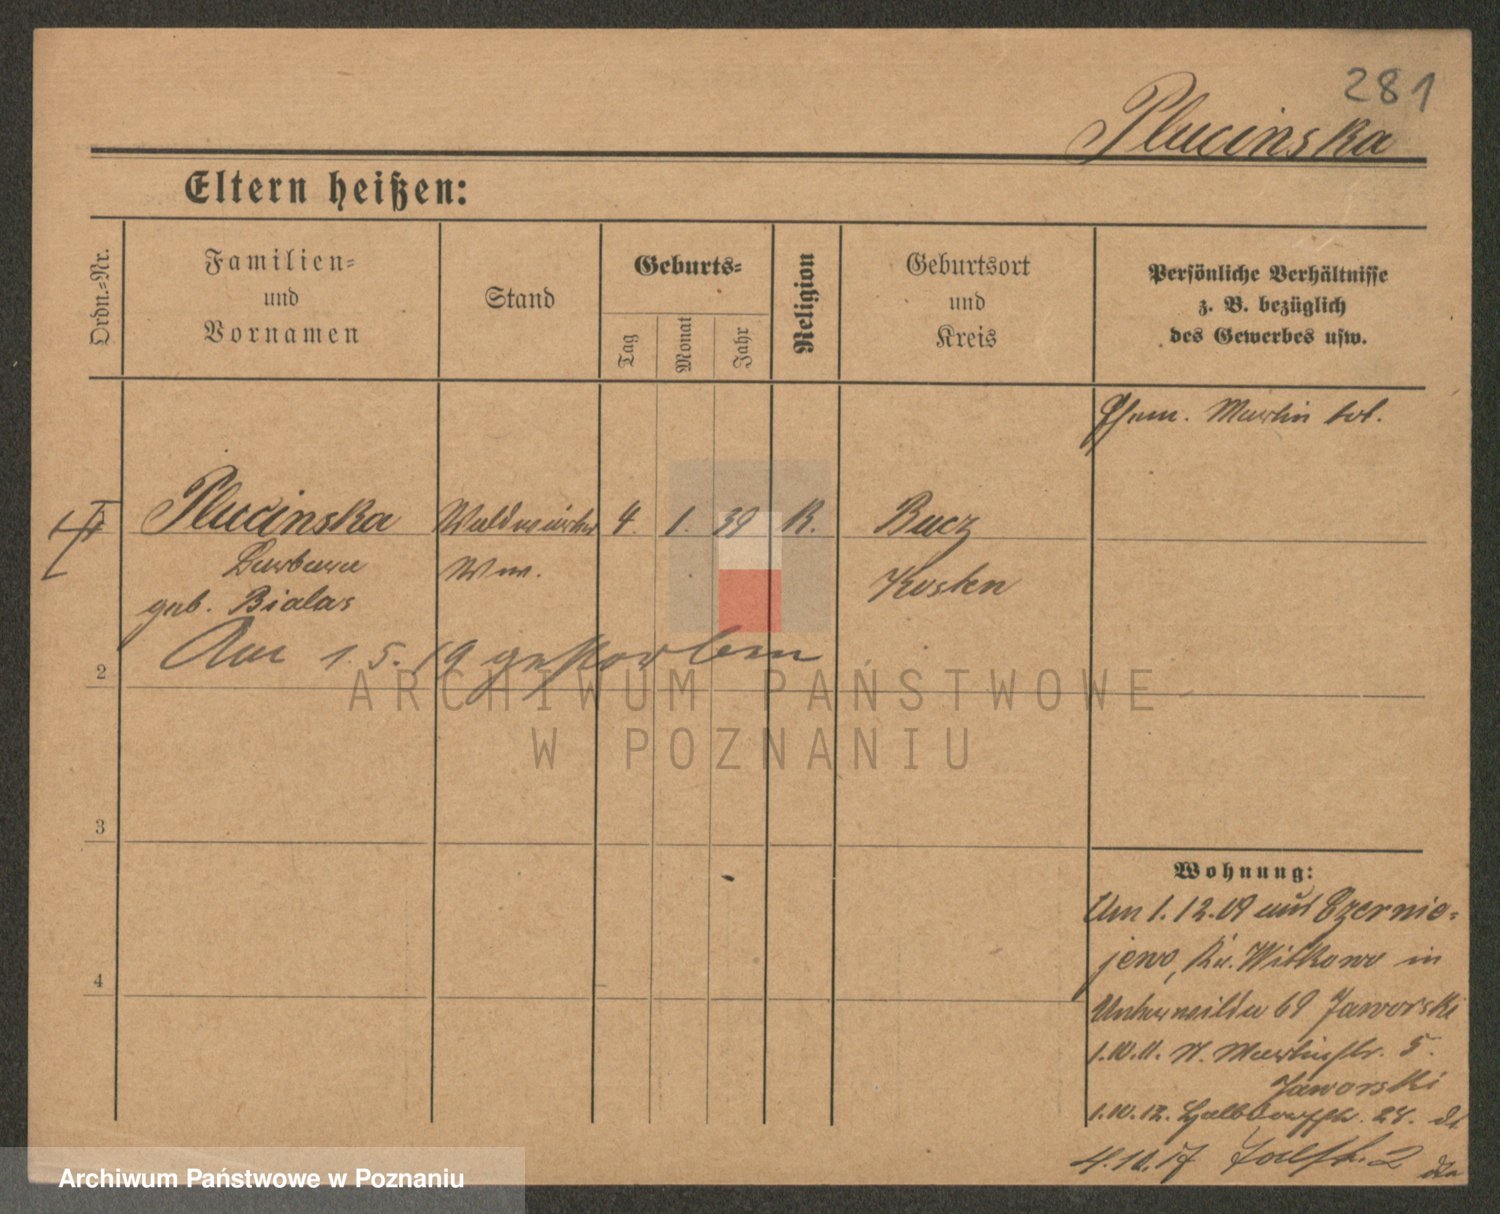 281
Plucinska
Eltern heißen:
Ordn.-Nr.
Familien-
und
Vornamen
Stand
Geburts-
Tag
Monat
Jahr
Religion
Geburtsort
und
Kreis
Persönliche Verhältnisse
z. B. bezüglich
des Gewerbes usw.
Ehem. Martin tot.
Plucinska Waldwärter 4. 1. 39 K. Bucz
Barbara Ww. Kosten
geb. Bialas
Am 1.5.19 gestorben
2
3
4
Wohnung:
Am 1.12.09 aus Czernie-
jewo, Kr. Witkowo in
Unterwilda 69 Jaworski
1.10.11. St. Martinstr. 5.
Jaworski
1.10.12. Halbdorfstr. 28. dt
4.10.17 2
ARCHIWUM PAŃSTWOWE
W POZNANIU
Archiwum Państwowe w Poznaniu